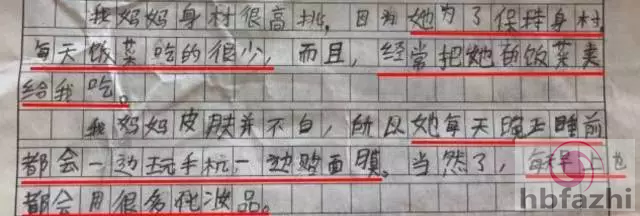 我妈妈身材很高挑，因为她为了保持身材，
每天饭菜吃的很少，而且，经常把她的饭菜夹
给我吃。
我妈妈皮肤并不白，所以她每天晚上睡前
都会一边玩手机，一边贴面膜。当然了，每样上也
都会用很多化妆品。
hbfazhi